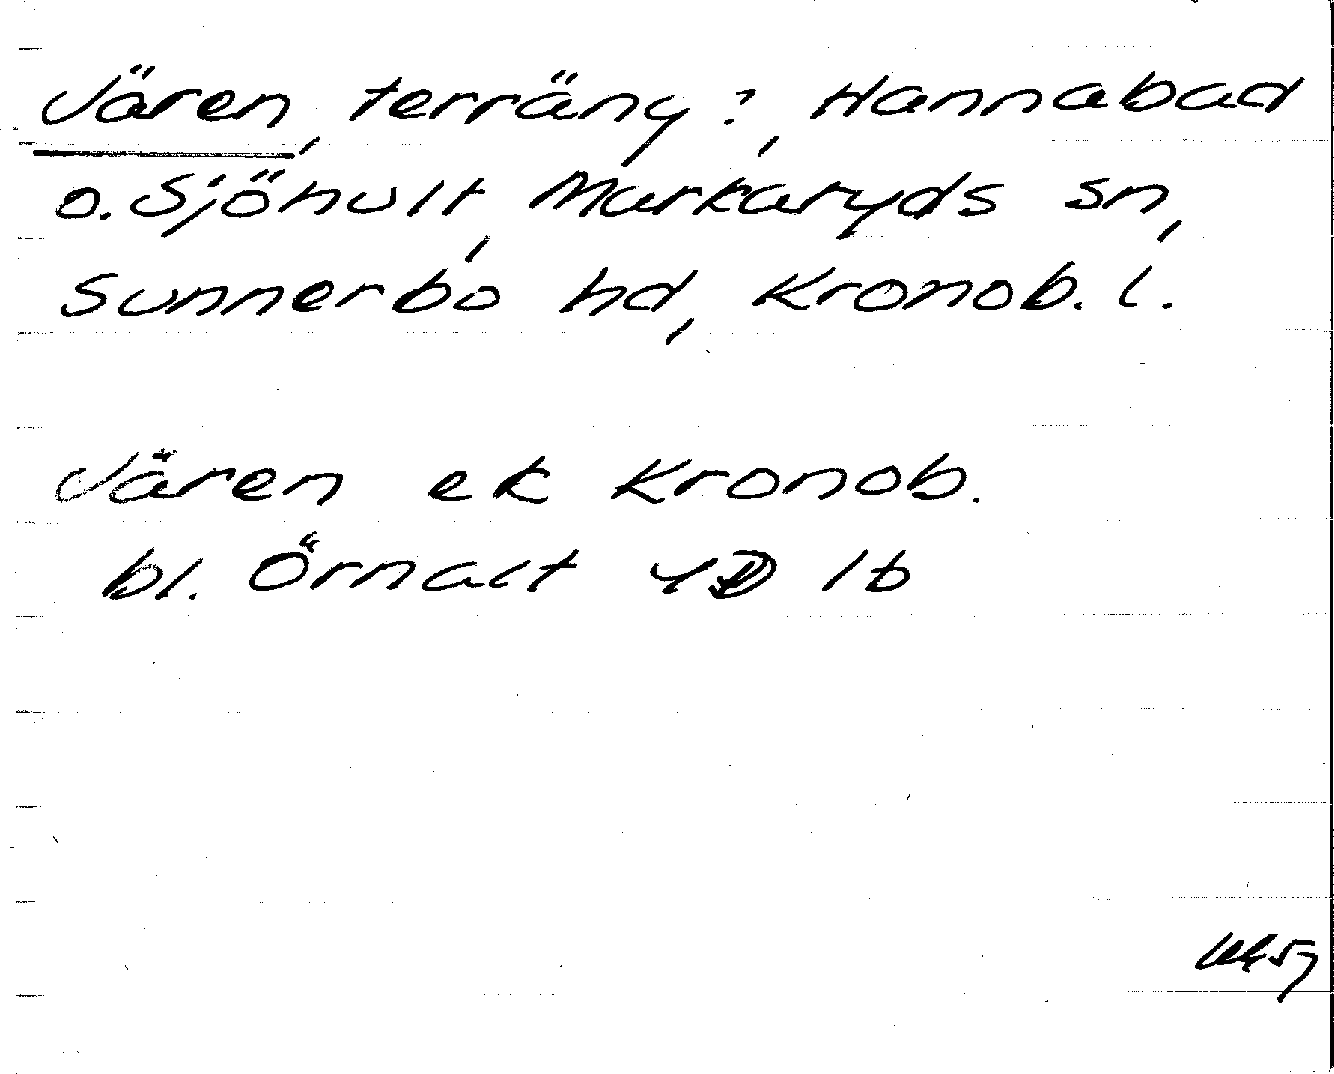 Jären, terräng?, Hannabad
o. Sjöhult, Markaryds sn,
Sunnerbo hd, Kronob. l.
Jären ek Kronob.
bl. Örnalt 4D 1b